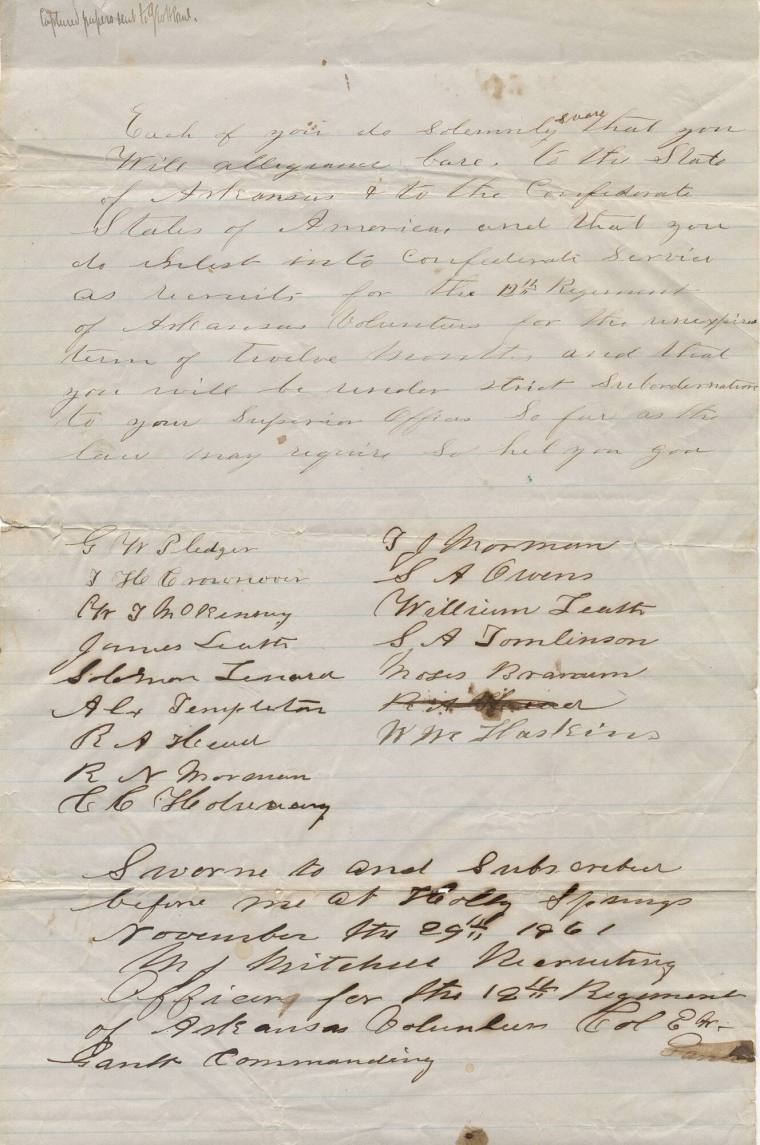 Captured papers sent to
Each of you do Solemnly sware that you
Will allegiance bare, to the State
of Arkansas & to the Confederate
States of America, and that you
do Enlest into Confederate Service
as recruits for the 12th Regiment
of Arkansas Volunteers for the unexpired
term of twelve Months, and that
you will be under strict Subordernation
to your Superior Officers So far as the
law may require So hel you god
G W Pledger
J H Crownover
W T McKenney
James Leath
Solemon Lenard
Alx Templeton
R A Head
R N Morman
C C Holsenary
T J Morman
S A Owens
William Leath
S A Tomlinson
Moses Branum
R A Head
W Wc Haskins
Sworne to and Subscribed
before me at Holly Springs
November the 29th 1861
M J Mitchell Recruiting
Officer for the 12th Regiment
of Arkansas Volunteers Col E W.
Gantt Commanding